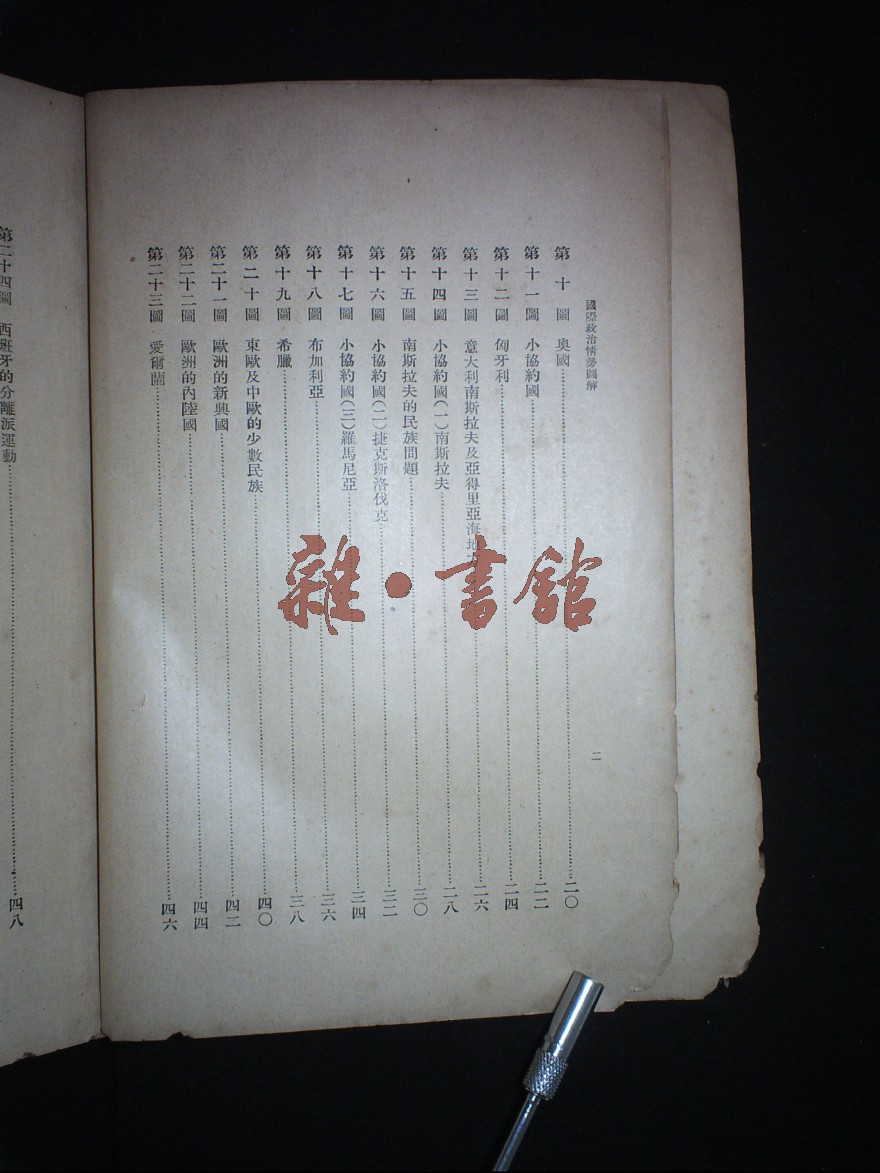 國際政治情勢圖解
二
第十圖 奧國……二〇
第十一圖 小協約國……二二
第十二圖 匈牙利……二四
第十三圖 意大利南斯拉夫及亞得里亞海地……二六
第十四圖 小協約國(一)南斯拉夫……二八
第十五圖 南斯拉夫的民族問題……三〇
第十六圖 小協約國(二)捷克斯洛伐克……三二
第十七圖 小協約國(三)羅馬尼亞……三四
第十八圖 布加利亞……三六
第十九圖 希臘……三八
第二十圖 東歐及中歐的少數民族……四〇
第二十一圖 歐洲的新興國……四二
第二十二圖 歐洲的內陸國……四四
第二十三圖 愛爾蘭……四六
第二十四圖 西班牙的分離派運動……四八
雜·書館